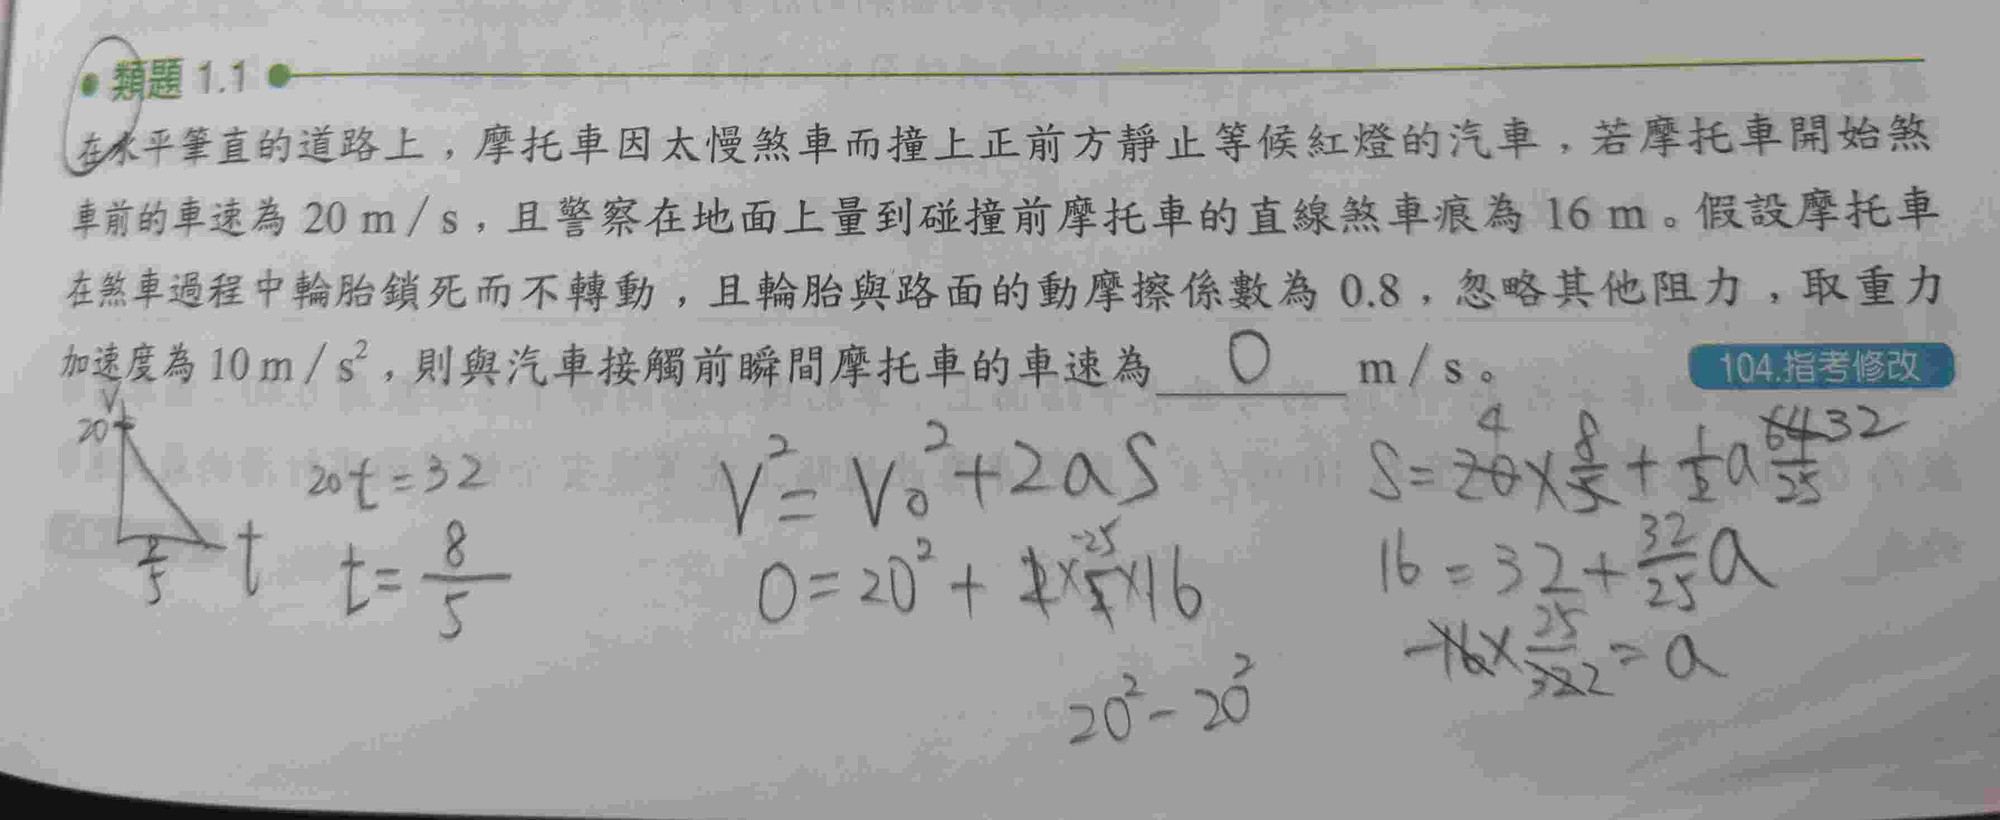 類題 1.1
在水平筆直的道路上，摩托車因太慢煞車而撞上正前方靜止等候紅燈的汽車，若摩托車開始煞
車前的車速為 20 m / s，且警察在地面上量到碰撞前摩托車的直線煞車痕為 16 m。假設摩托車
在煞車過程中輪胎鎖死而不轉動，且輪胎與路面的動摩擦係數為 0.8，忽略其他阻力，取重力
加速度為 10 m / s²，則與汽車接觸前瞬間摩托車的車速為 0 m / s。
104.指考修改
V
20
8/5 t
20t = 32
t = 8/5
V² = V₀² + 2aS
0 = 20² + 2 × -25/2 × 16
20² - 20²
S = 20 4 × 8/5 + 1/2 a 64 32/25
16 = 32 + 32/25 a
-16 × 25/32 2 = a